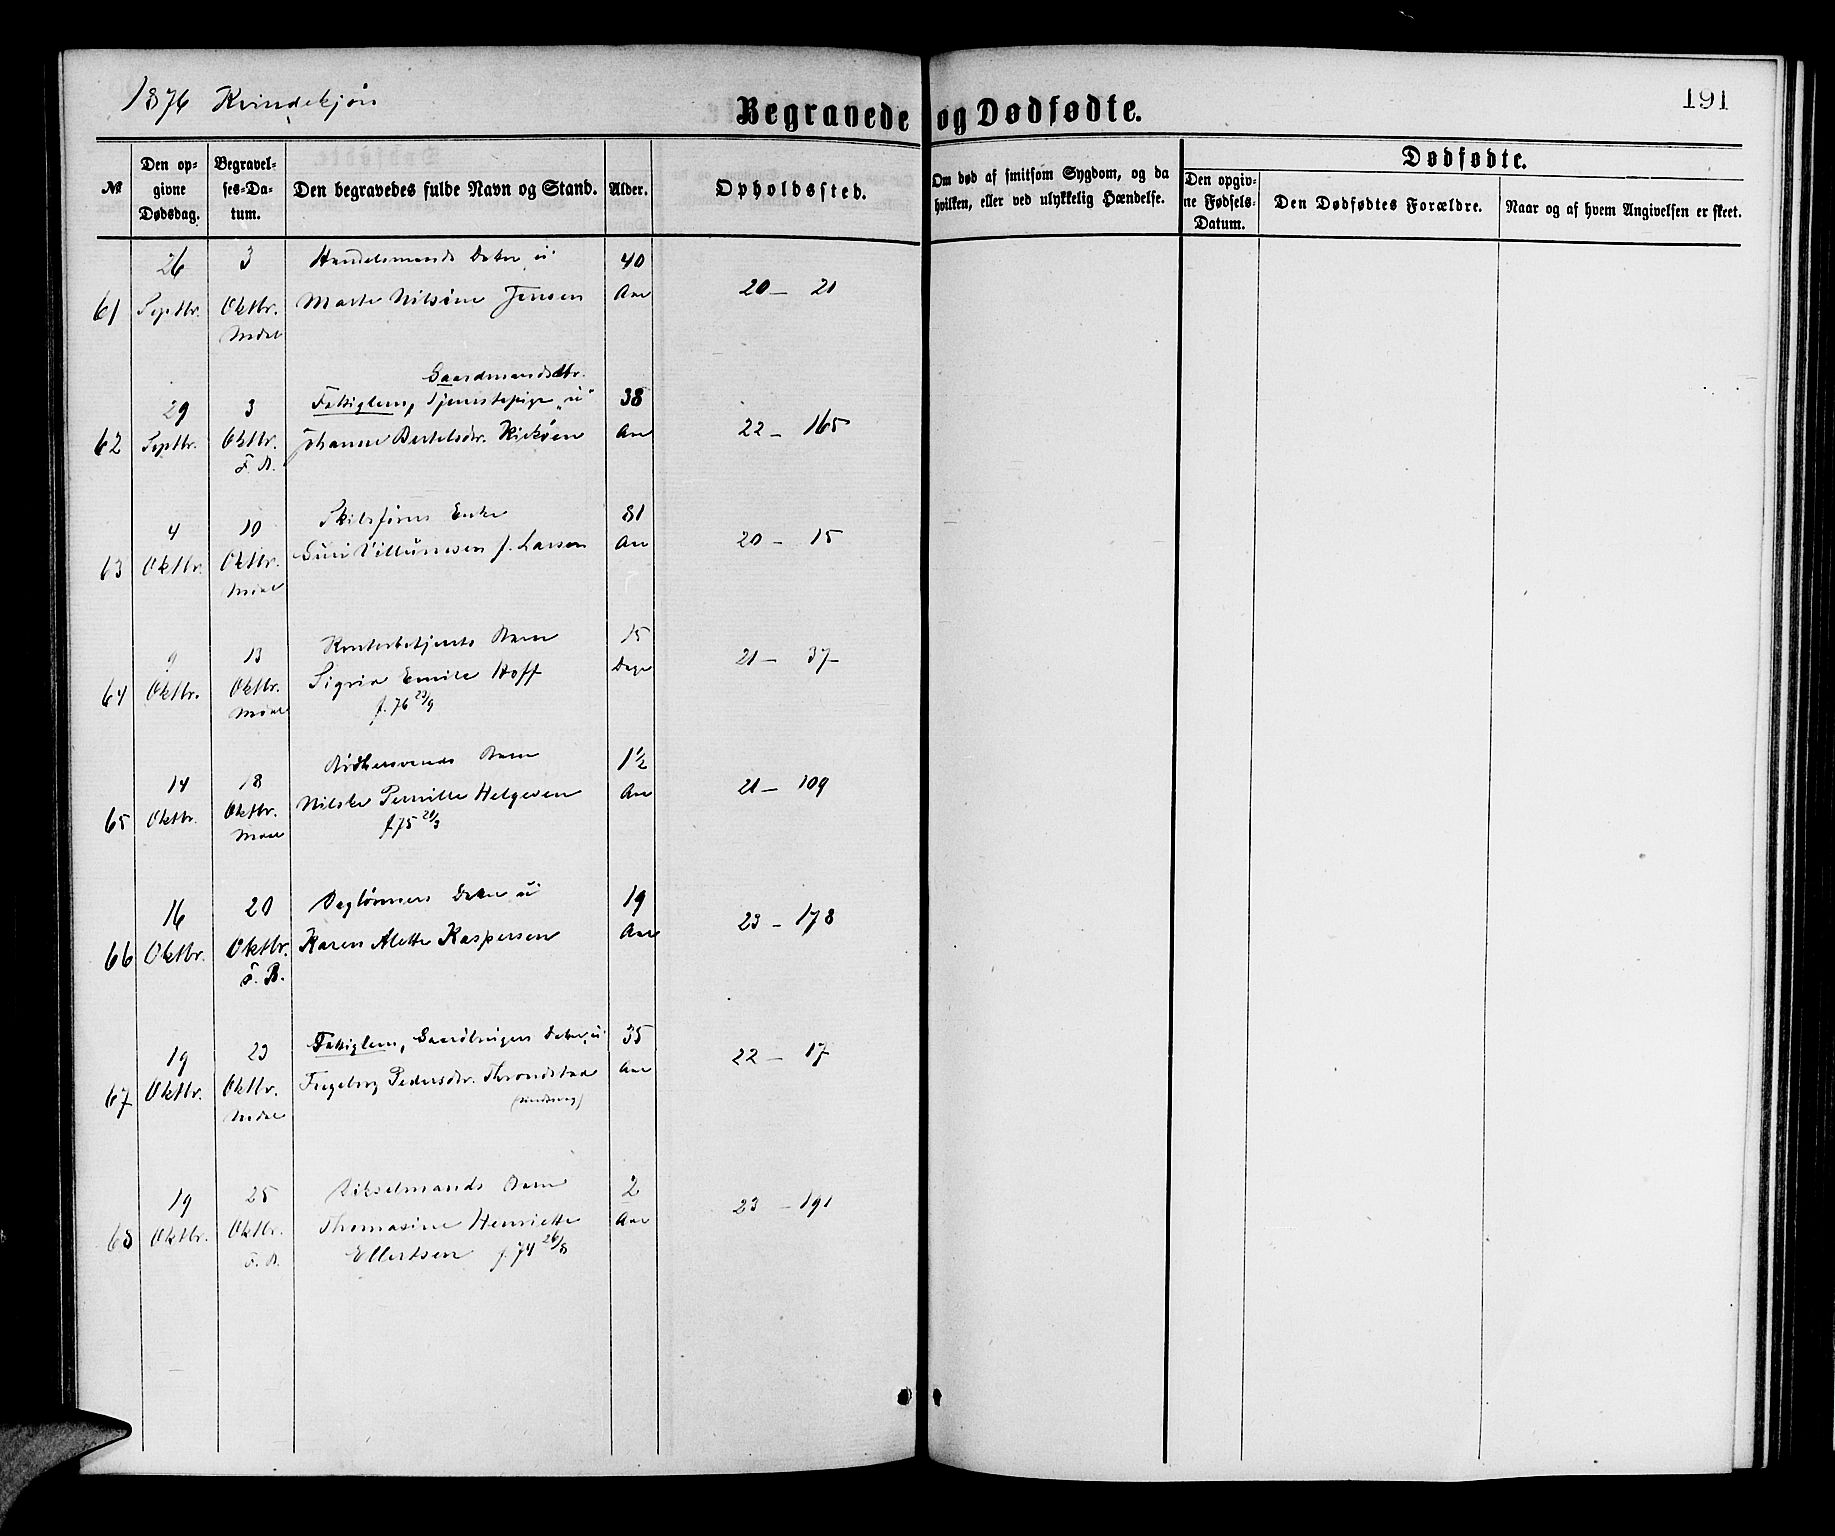 1876 Kvindekjøn
Begravede og Dødfødte.
191
№
Den opgivne Dødsdag.
Begravelses-Datum.
Den begravedes fulde Navn og Stand.
Alder.
Opholdssted.
Om død af smitsom Sygdom, og da hvilken, eller ved ulykkelig Hændelse.
Dødfødte.
Den opgivne Fødsels-Datum.
Den Dødfødtes Forældre.
Naar og af hvem Angivelsen er skeet.
61
26 Septbr.
3 Oktbr.
Handelsmands Datter „u“
Marte Nilsine Jensen
40 Aar
20 — 21
62
29 Septbr.
3 Oktbr.
F. B.
Gaardmandsdtr.
Fattiglem, Tjenestepige „u“
Johanne Bertelsdtr.
38 Aar
22 — 165
63
4 Oktbr.
10 Oktbr.
Skibsførers Enke
Villumsen f. Larsen
81 Aar
20 — 15
64
9 Oktbr.
13 Oktbr.
Kontorbetjents Barn
Sigrid Emilie Hoff
f. 76 23/9
15 Dage
21 — 37
65
14 Oktbr.
18 Oktbr.
Bødkersvends Barn
Pernille Helgesen
f. 75 21/3
1½ Aar
21 — 109
66
16 Oktbr.
20 Oktbr.
F. B.
Dagløners Datter „u“
Karen Alette Kaspersen
19 Aar
23 — 178
67
19 Oktbr.
23 Oktbr.
Fattiglem, Gaardbrugers Datter „u“
Ingeborg Pedersdtr. Throndstad
(sindssvag)
35 Aar
22 — 17
68
19 Oktbr.
25 Oktbr.
F. B.
Barn
Thomasine Henriette
Ellertsen f. 74 26/8
2 Aar
23 — 191